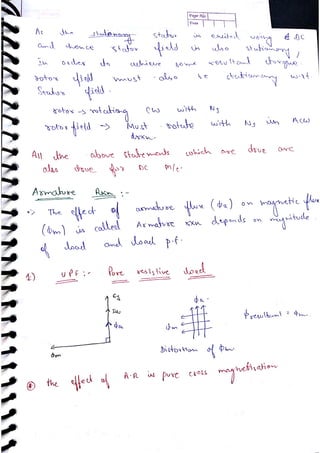 Page No.
Date
As the stationary stator is excited using DC
and hence stator field is also stationary,
in order to achieve some resultant torque
rotor field must also be stationary w.r.t
Stator field.
rotor → rotating CW with Ns
rotor field → Must rotate with Ns in ACW
dirxn.
All the above Statements which are true are
also true for DC M/c.
Armature Rxn :-
→ The effect of armature flux (ϕa) on magnetic flux
(ϕm) is called Armature rxn depends on magnitude
of load and load p.f.
1). UPF :- Pure resistive load
ϕa
ϕm
ϕa
ϕm
ϕresultant =
Distortion of ϕm
the effect of A.R is pure cross magnetisation